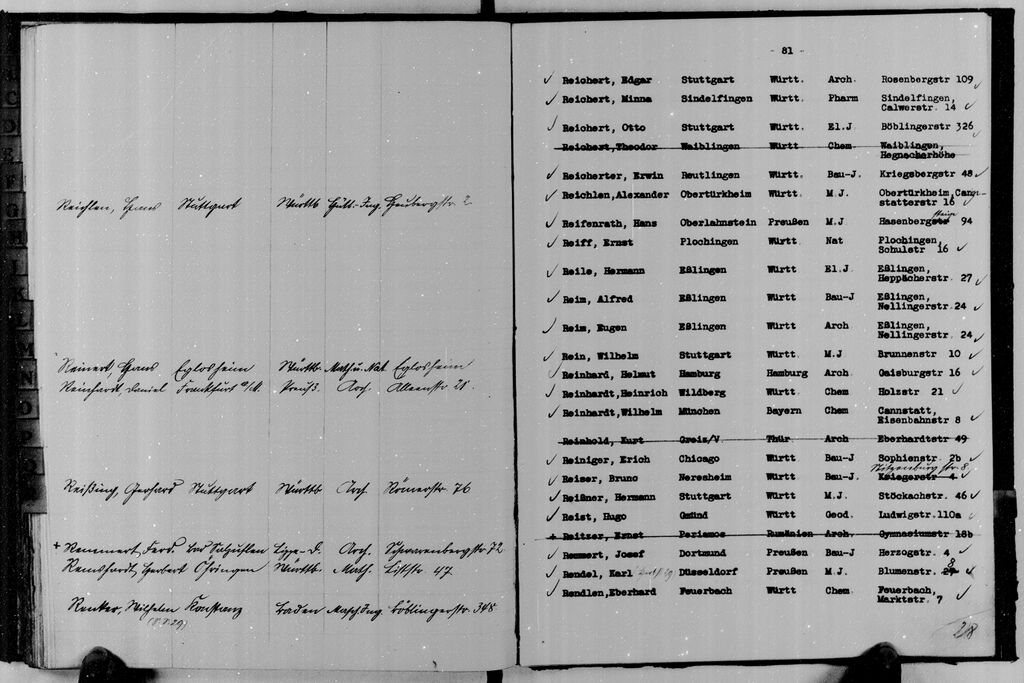 Reichlen, Hans Stuttgart Württb. Hütt.-Ing. Heubergstr. 2
Reinert, Hans Eglosheim Württb. Math.u.Nat Eglosheim
Reinhardt, Daniel Frankfurt a/M. Preuß. Arch. Alleenstr. 21.
Reißing, Gerhard Stuttgart Württb. Arch. Römerstr. 76
+ Remmert, Ferd. Bad Salzuflen Lippe-D. Arch. Schwarenbergstr. 72
Remshardt, Herbert Öhringen Württb. Math. Liststr. 47.
Renker, Wilhelm Konstanz Baden Masch.Ing. Böblingerstr. 348
- 81 -
✓ Reichert, Edgar Stuttgart Württ. Arch. Rosenbergstr 109 ✓
✓ Reichert, Minna Sindelfingen Württ. Pharm Sindelfingen,
Calwerstr. 14 ✓
✓ Reichert, Otto Stuttgart Württ. El.J. Böblingerstr 326 ✓
Reichert,Theodor Waiblingen Württ Chem. Waiblingen,
Hegnacherhöhe
✓ Reicherter, Erwin Reutlingen Württ. Bau-J. Kriegsbergstr 48 ✓
✓ Reichlen,Alexander Obertürkheim Württ. M.J. Obertürkheim,Cann-
statterstr 16 ✓
✓ Reifenrath, Hans Oberlahnstein Preußen M.J Hasenbergsteige 94
✓ Reiff, Ernst Plochingen Württ. Nat Plochingen,
Schulstr 16 ✓
✓ Reile, Hermann Eßlingen Württ El.J. Eßlingen,
Heppächerstr. 27 ✓
✓ Reim, Alfred Eßlingen Württ Bau-J Eßlingen,
Nellingerstr. 24 ✓
✓ Reim, Eugen Eßlingen Württ Arch Eßlingen,
Nellingerstr. 24 ✓
✓ Rein, Wilhelm Stuttgart Württ M.J Brunnenstr 10 ✓
✓ Reinhard, Helmut Hamburg Hamburg Arch. Gaisburgstr 16 ✓
✓ Reinhardt,Heinrich Wildberg Württ. Chem Holzstr 21 ✓
✓ Reinhardt,Wilhelm München Bayern Chem Cannstatt,
Eisenbahnstr 8 ✓
Reinhold, Kurt Greiz/V Thür Arch Eberhardtstr 49
✓ Reiniger, Erich Chicago Württ. Bau-J Sophienstr. 2b ✓
Stitzenburgstr. 8,
✓ Reiser, Bruno Neresheim Württ Bau-J. Kriegerstr 4 ✓
✓ Reißner, Hermann Stuttgart Württ M.J. Stöckachstr. 46 ✓
✓ Reist, Hugo Gmünd Württ Geod. Ludwigstr.110a ✓
+ Reitzer, Ernst Periamos Rumänien Arch. Gymnasiumstr 18b
✓ Remmert, Josef Dortmund Preußen Bau-J Herzogstr. 4 ✓
8
✓ Rendel, Karl Düsseldorf Preußen M.J. Blumenstr. 27 ✓
✓ Rendlen,Eberhard Feuerbach Württ Chem. Feuerbach,
Marktstr. 7 ✓
28